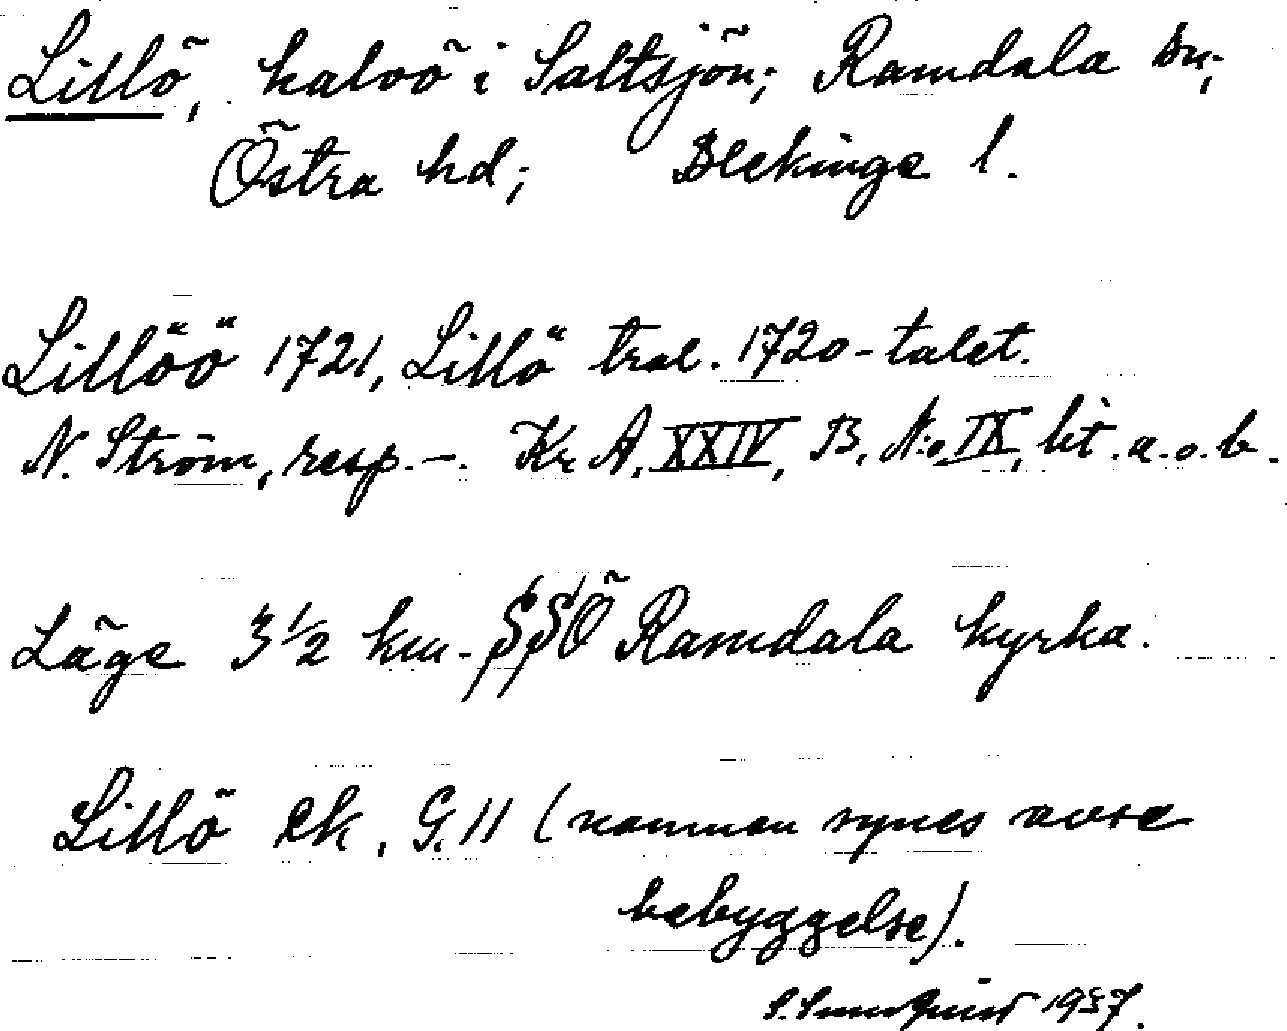 Lillö, halvö i Saltsjön; Ramdala sn;
Östra hd; Blekinge l.
Lillöö 1721, Lillö tral. 1720-talet.
N. Ström, resp. –. Kr A, XXIV, B, N:o IX, lit. a. o. b.
Läge 3 1/2 km. SSÖ Ramdala kyrka.
Lillö ek. G. 11 (namnen synes avse
bebyggelse).
1937.